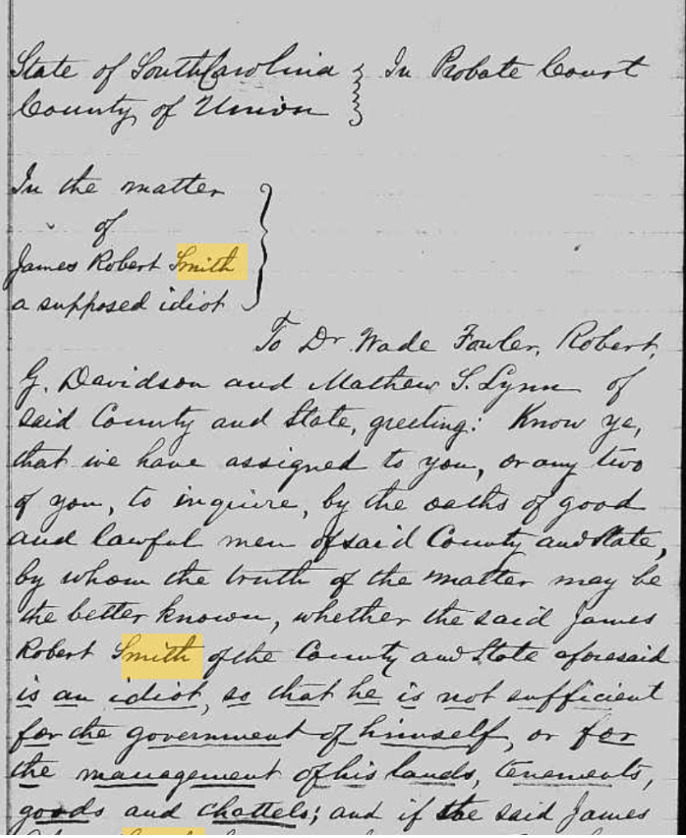 State of South Carolina } In Probate Court
County of Union
In the matter
of
James Robert Smith
a supposed idiot
To Dr. Wade Fowler, Robert,
G. Davidson and Mathew S. Lynn of
said County and State, greeting: Know ye,
that we have assigned to you, or any two
of you, to inquire, by the oaths of good
and lawful men of said County and State,
by whom the truth of the matter may be
the better known, whether the said James
Robert Smith of the County and State aforesaid
is an idiot, so that he is not sufficient
for the government of himself, or for
the management of his lands, tenements,
goods and chattels; and if the said James